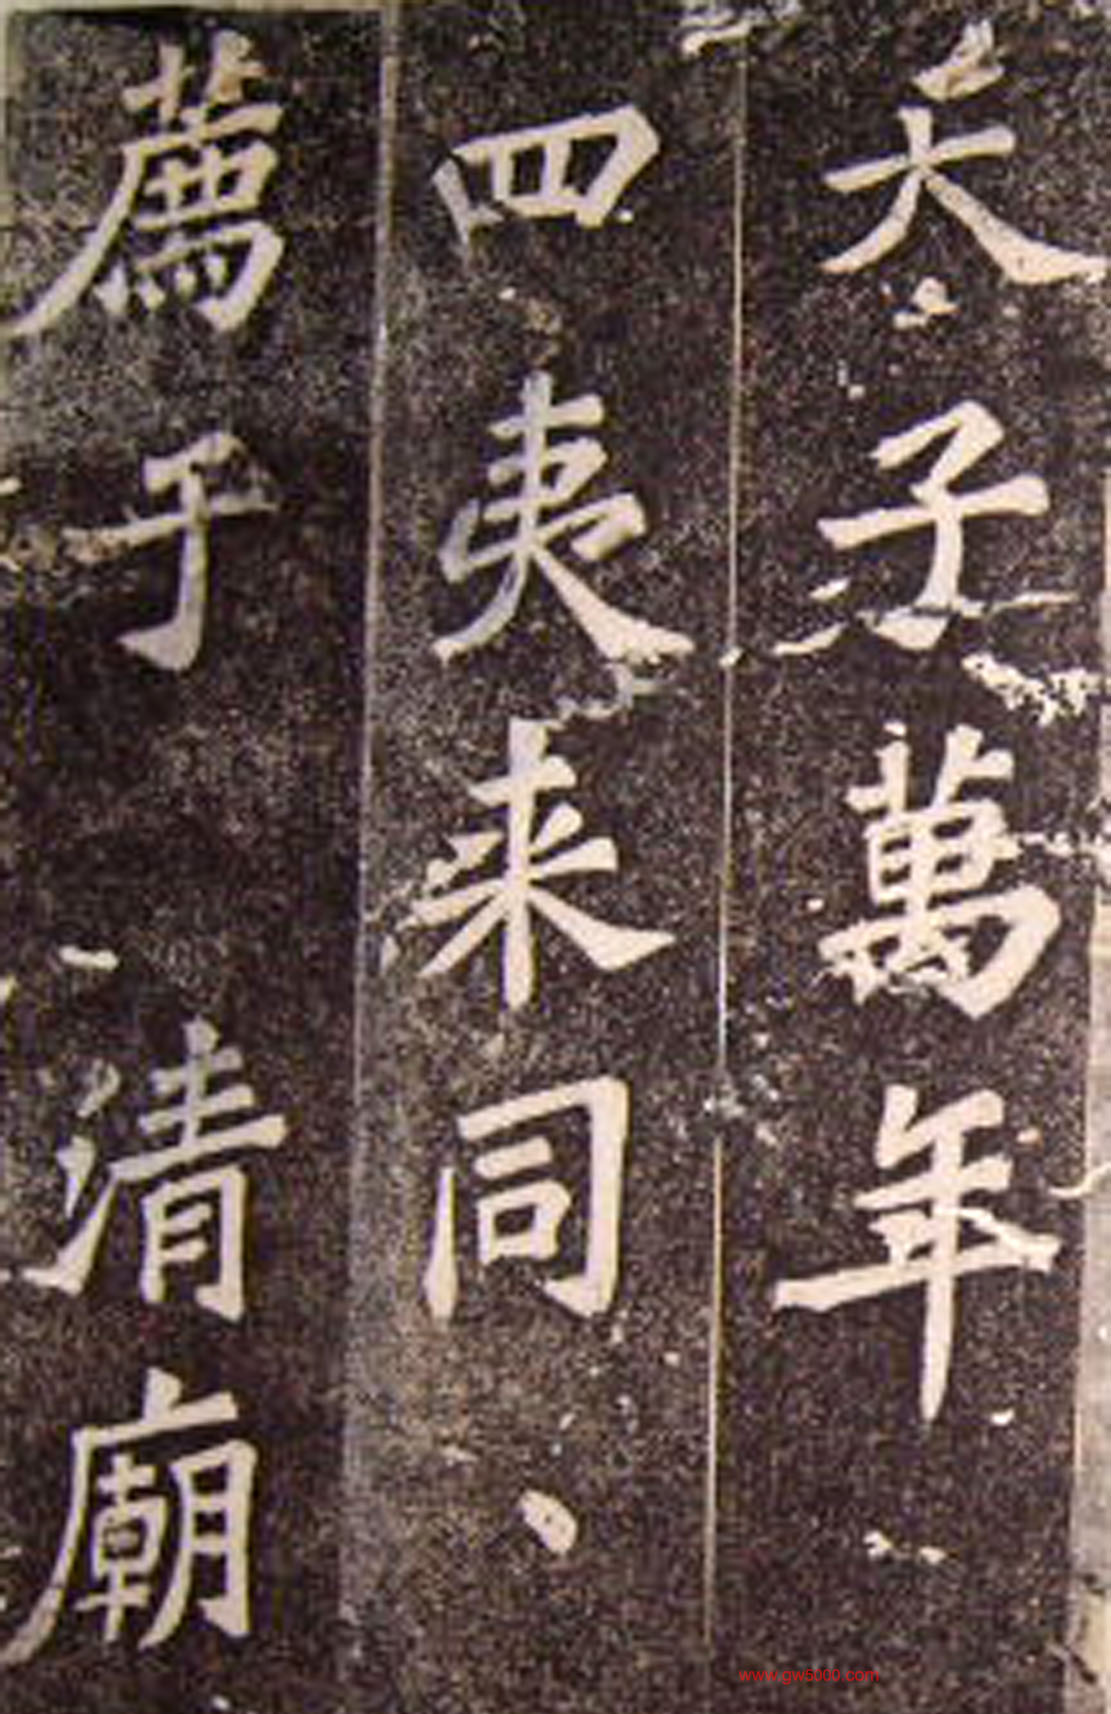 天子萬年
四夷来同
薦于清廟
www.gw5000.com